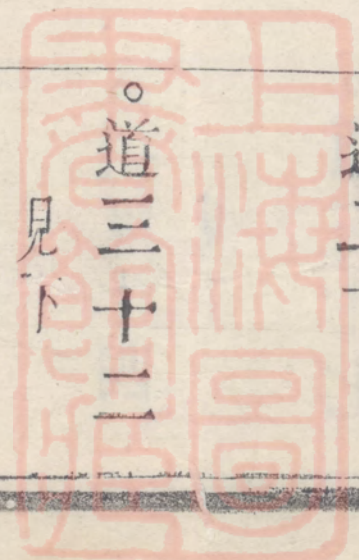 。道三十二
見下
上海圖書館藏